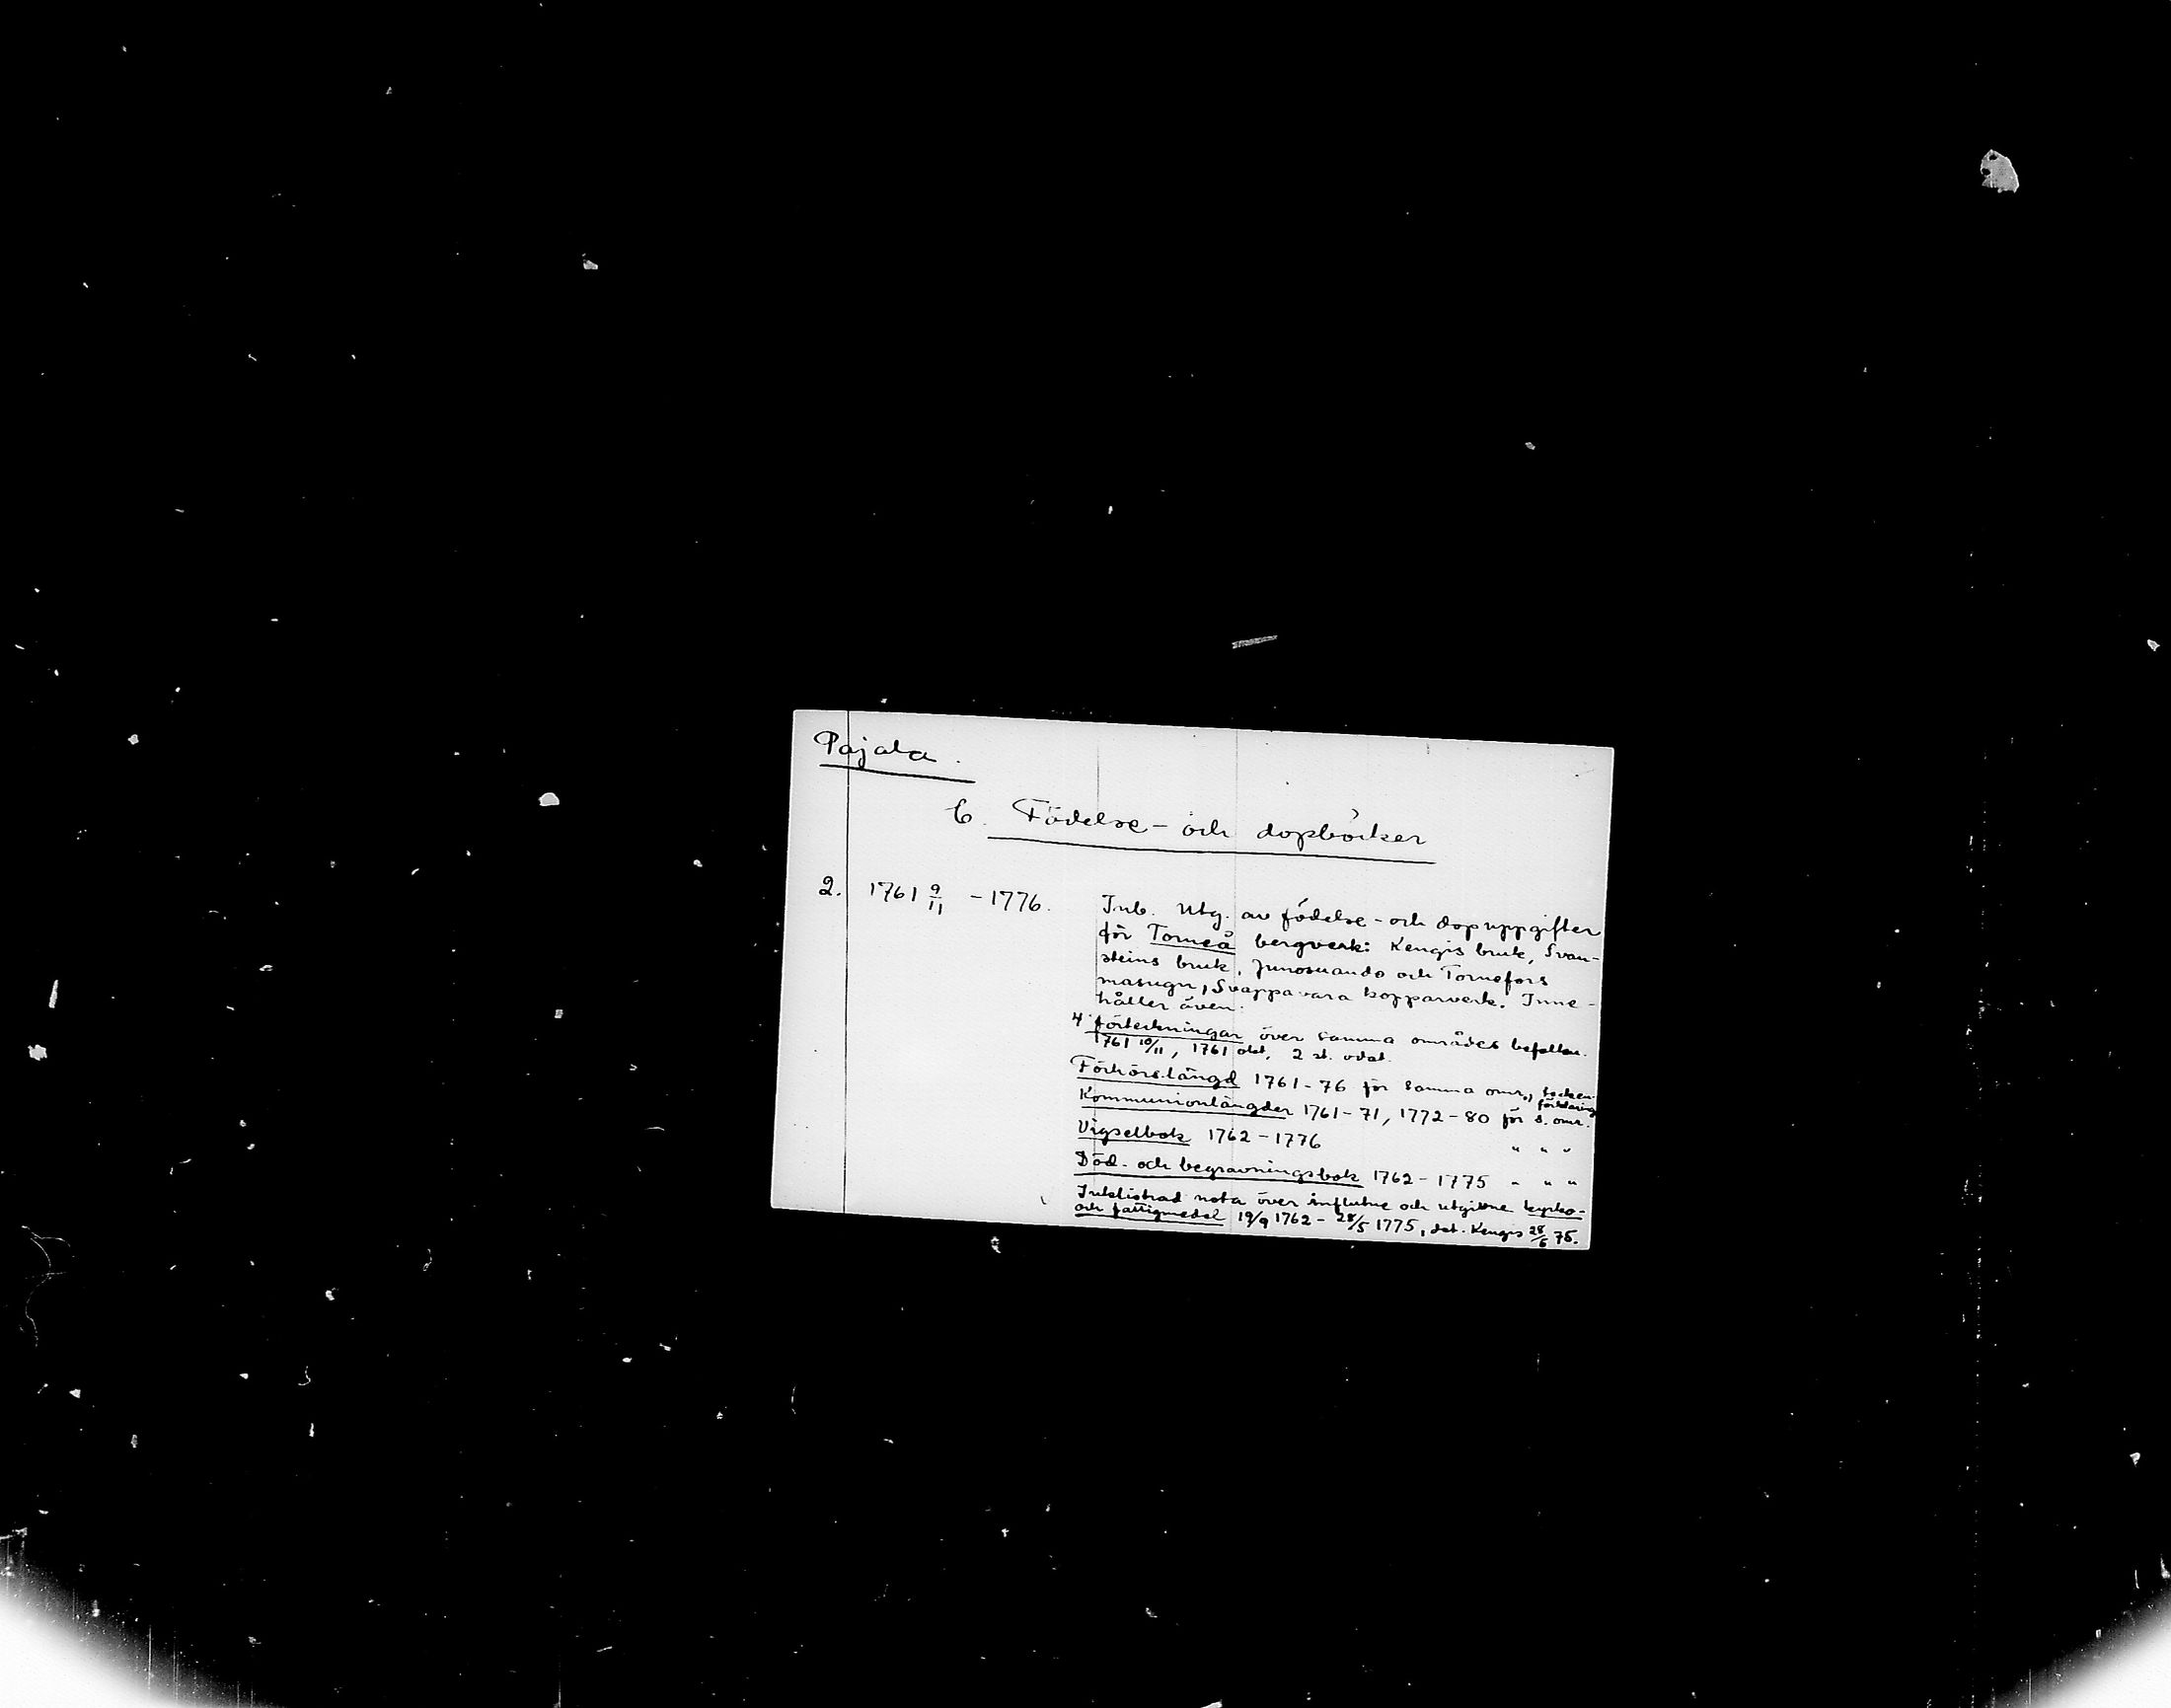 Pajala.
C. Födelse- och dopböcker
2. 1761 9/11 - 1776.
Inb. Utg. av födelse- och dopuppgifter
för Torneå bergverk: Kengis bruk, Svan-
steins bruk, Junosuando och Tornefors
masugn, Svappavara kopparverk. Inne-
håller även:
4 förteckningar över samma områdes befolkn.
1761 10/11, 1761 okt, 2 st. odat.
Förhörslängd 1761-76 för samma omr.,
Kommunionlängder 1761-71, 1772-80 för s. omr.
Vigselbok 1762-1776 " " "
Död- och begravningsbok 1762-1775 " " "
Inklistrad nota över influtne och utgivne kyrko-
och fattigmedel 19/9 1762 - 28/5 1775, dat. Kengis 28/5 75.